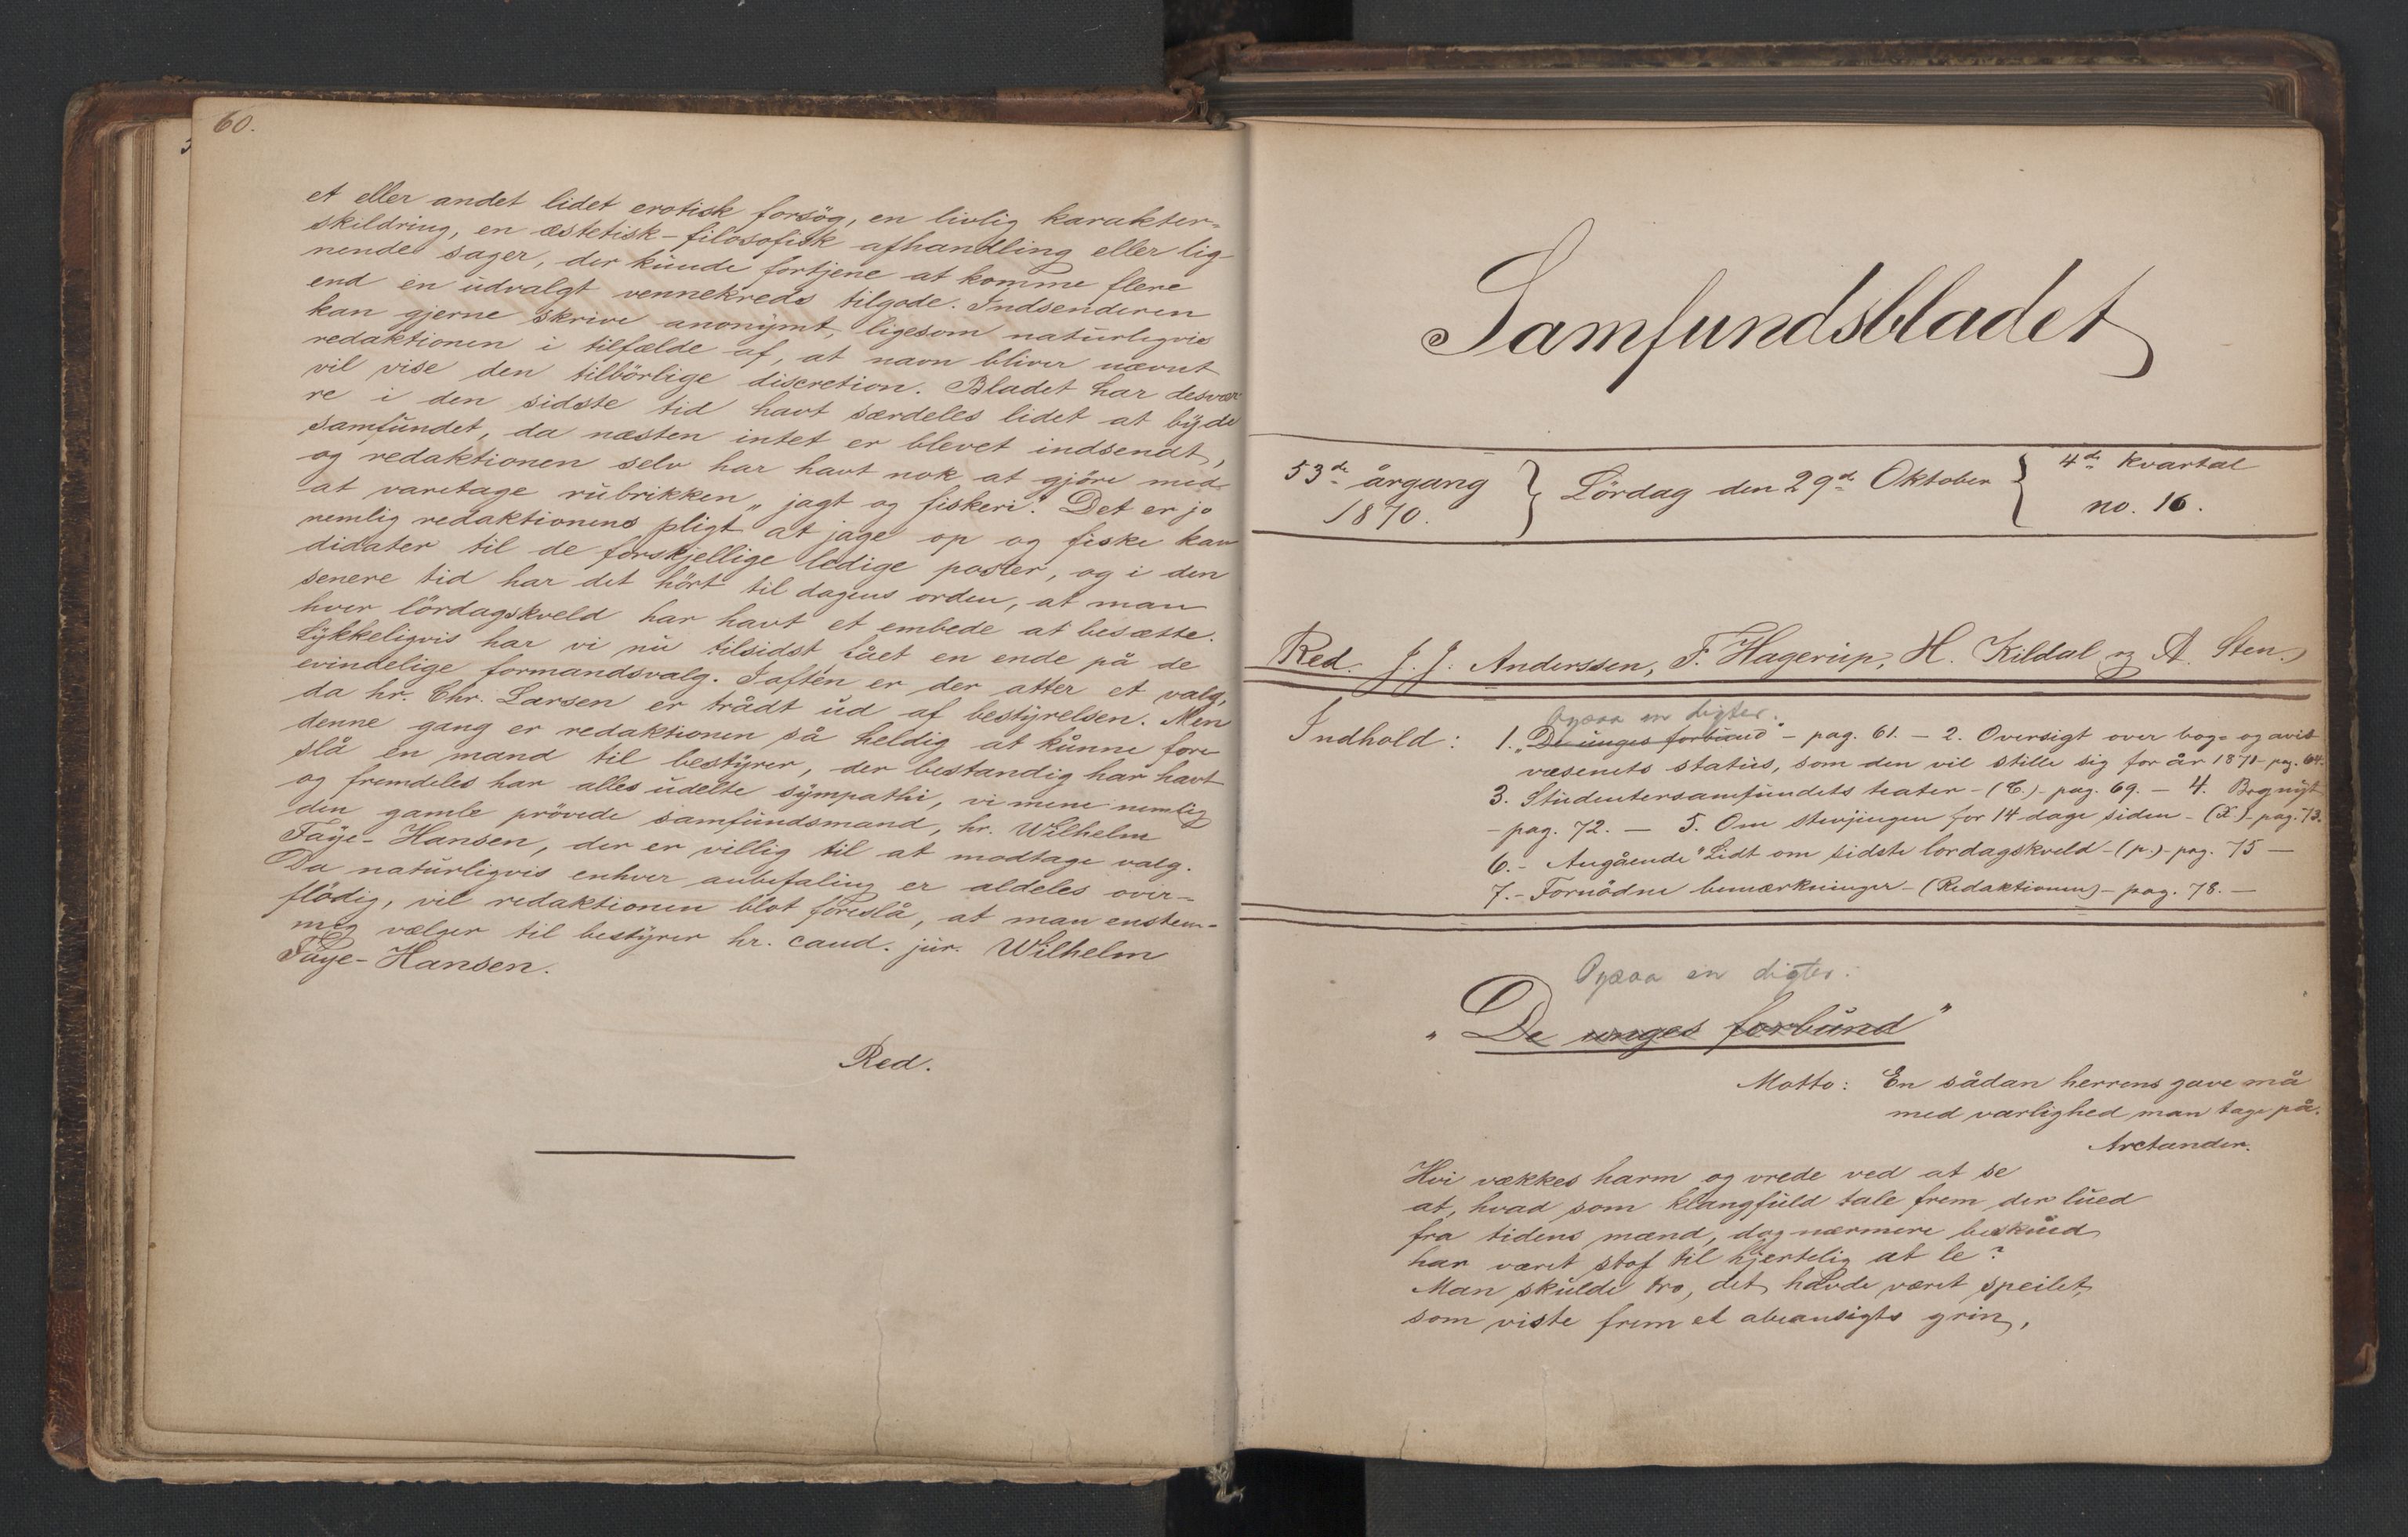 60.
et eller andet lidet erotisk forsög, en livlig karakter=
skildring, en æstetisk-filosofisk afhandling eller lig-
nende sager, der kunde fortjene at komme flere
end en udvalgt vennekreds tilgode. Indsenderen
kan gjerne skrive anonymt, ligesom naturligvis
redaktionen i tilfælde af, at navn bliver nævnt
vil vise den tilbörlige discretion. Bladet har desvær-
re i den sidste tid havt særdeles lidet at byde
samfundet, da næsten intet er blevet indsendt,
og redaktionen selv har havt nok at gjöre med
at varetage rubrikken „jagt og fiskeri". Det er jo
nemlig redaktionens pligt at jage op og fiske kan
didater til de forskjellige ledige poster, og i den
senere tid har det hört til dagens orden, at man
hver lördagskveld har havt et embede at besætte.
Lykkeligvis har vi nu tilsidst fået en ende på de
evindelige formandsvalg. Iaften er der atter et valg,
da hr. Chr. Larsen er trådt ud af bestyrelsen. Men
denne gang er redaktionen så heldig at kunne fore
slå en mand til bestyrer, der bestandig har havt
og fremdeles har alles udelte sympathi, vi mene nemlig
den gamle prövede samfundsmand, hr. Wilhelm
Faye-Hansen, der er villig til at modtage valg.
Da naturligvis enhver anbefaling er aldeles over-
flödig, vil redaktionen blot foreslå, at man enstem-
mig vælger til bestyrer hr. cand. jur. Wilhelm
Faye-Hansen.
Red.
Samfundsbladet
53de årgang 1870. } Lördag den 29de Oktober { 4de kvartal no. 16.
Red. J. J. Anderssen, F. Hagerup, H. Kildal og A. Sten.
Ogsaa en digter.
Indhold: 1. „De unges forbund" - pag. 61. - 2. Oversigt over bog- og avis
væsenets status, som den vil stille sig for år 1871 - pag. 64.
3. Studentersamfundets teater - (C.) - pag. 69. - 4. Bognyt
- pag. 72. - 5. Om stevjingen for 14 dage siden - (X.) - pag. 73.
6. - Angående "Lidt om sidste lordagskveld - (p.) - pag. 75 -
7. - Fornödne bemærkninger - (Redaktionen) - pag. 78. -
Ogsaa en digter.
„De unges forbund"
Motto: En sådan herrens gave må
med varlighed man tage på.
Arctander.
Hvi vækkes harm og vrede ved at se
at, hvad som klangfuld tale frem der lued
fra tidens mænd, dog nærmere beskued
har været stof til hjertelig at le?
Man skulde tro, det havde været speilet,
som viste frem et abeansigts grin,